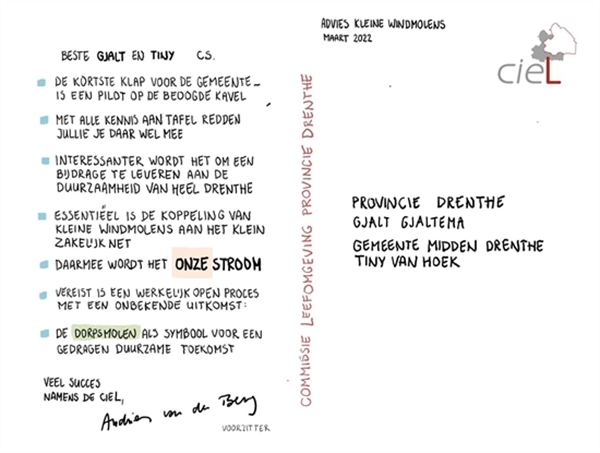 BESTE GJALT EN TINY C.S.
DE KORTSTE KLAP VOOR DE GEMEENTE
IS EEN PILOT OP DE BEOOGDE KAVEL
MET ALLE KENNIS AAN TAFEL REDDEN
JULLIE JE DAAR WEL MEE
INTERESSANTER WORDT HET OM EEN
BIJDRAGE TE LEVEREN AAN DE
DUURZAAMHEID VAN HEEL DRENTHE
ESSENTIEEL IS DE KOPPELING VAN
KLEINE WINDMOLENS AAN HET KLEIN
ZAKELIJK NET
DAARMEE WORDT HET ONZE STROOM
VEREIST IS EEN WERKELIJK OPEN PROCES
MET EEN ONBEKENDE UITKOMST:
DE DORPSMOLEN ALS SYMBOOL VOOR EEN
GEDRAGEN DUURZAME TOEKOMST
VEEL SUCCES
NAMENS DE CIEL,
Andries van den Berg
VOORZITTER
COMMISSIE LEEFOMGEVING PROVINCIE DRENTHE
ADVIES KLEINE WINDMOLENS
MAART 2022
cieL
PROVINCIE DRENTHE
GJALT GJALTEMA
GEMEENTE MIDDEN DRENTHE
TINY VAN HOEK